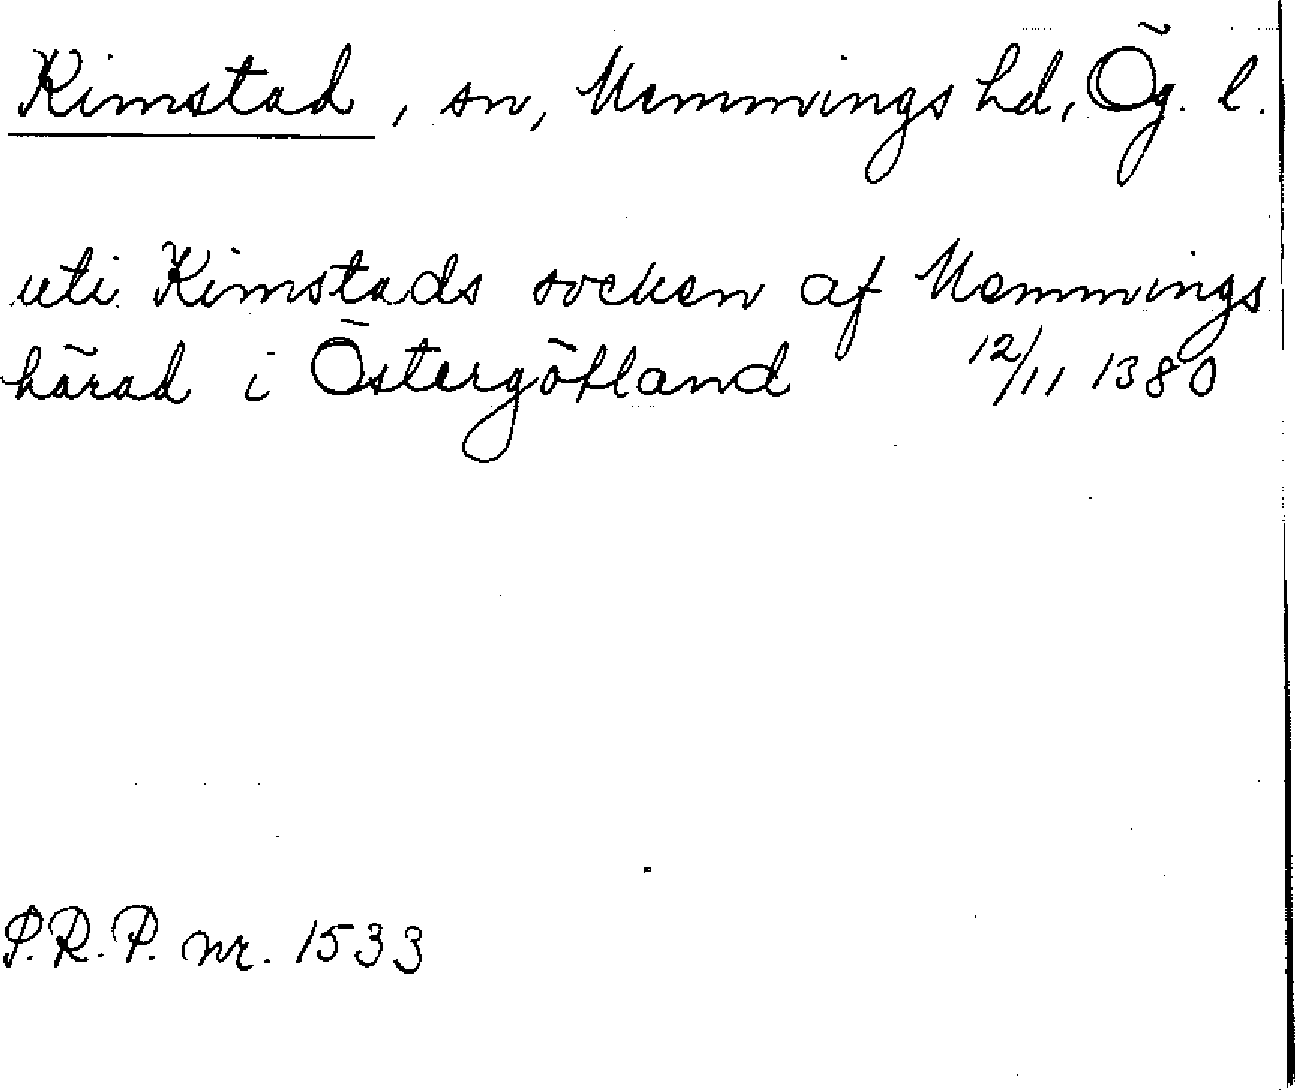 Kimstad, sn, Memmings hd, Ög. l.
uti Kimstads socken af Memmings
härad i Östergötland 12/11 1380
S.R.P. nr. 1533